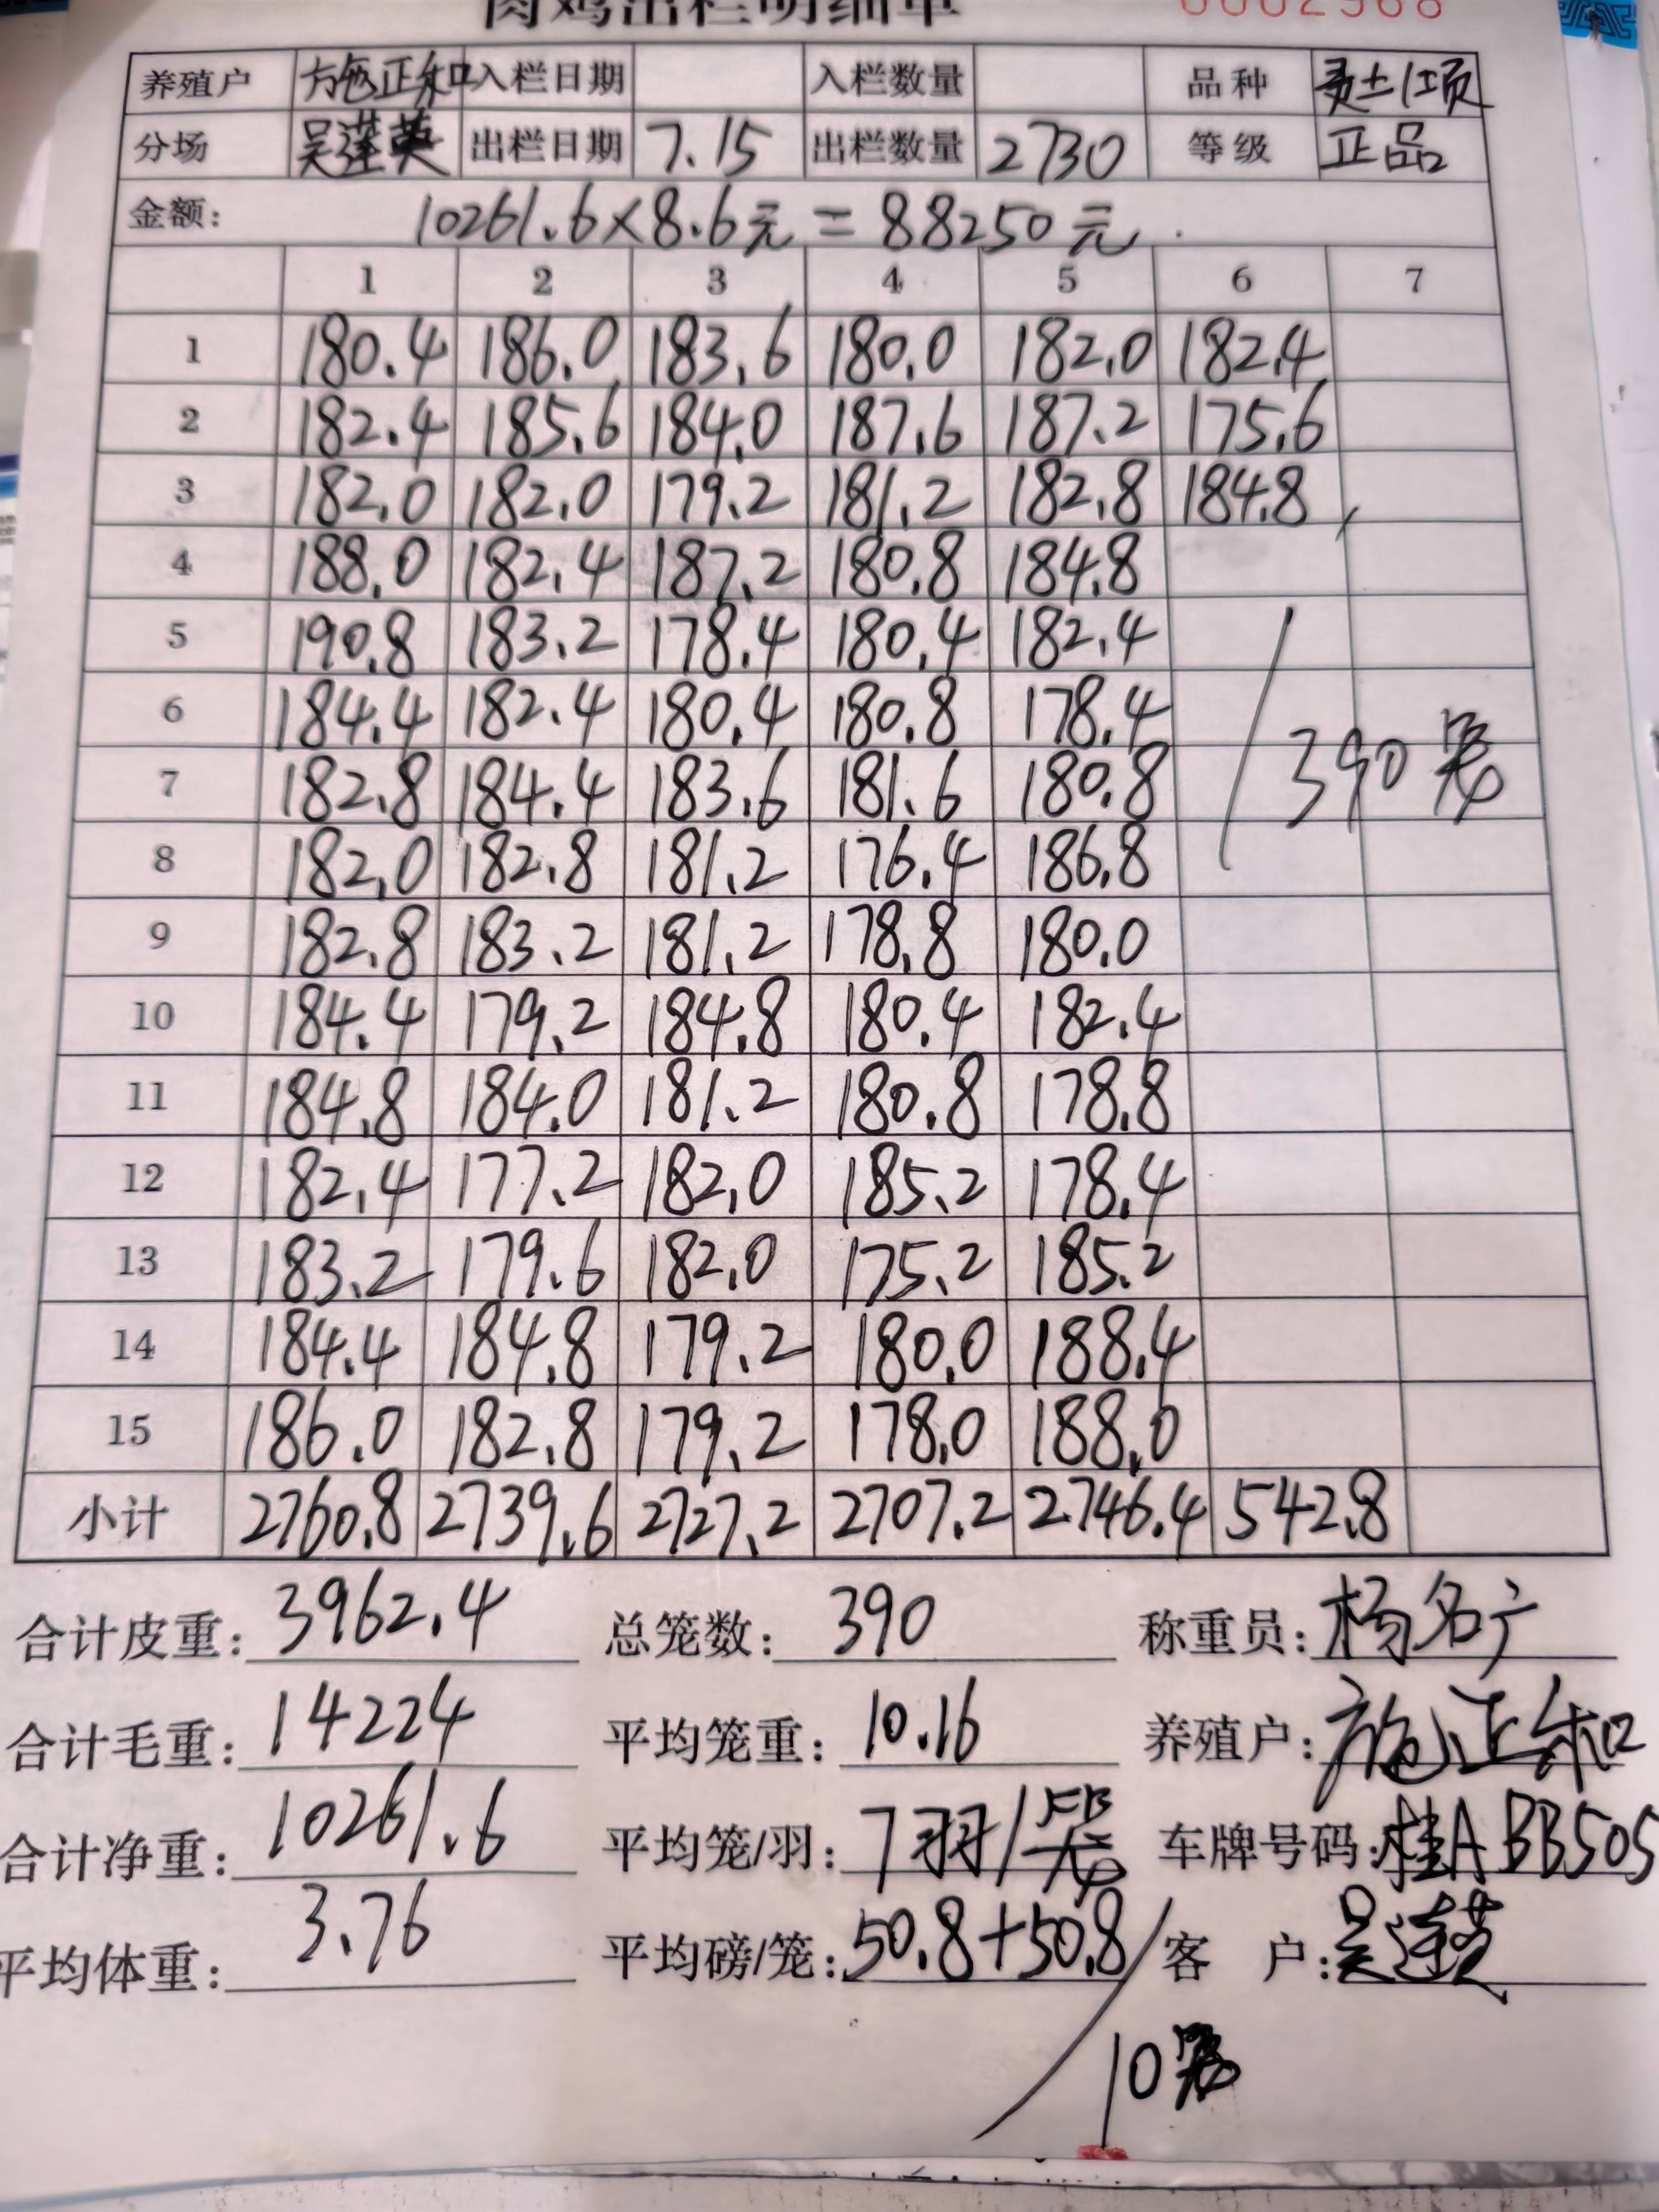 肉鸡出栏明细单 0002968
养殖户 施正和 入栏日期 入栏数量 品种 麦土1项
分场 吴莲英 出栏日期 7.15 出栏数量 2730 等级 正品
金额: 10261.6×8.6元=88250元.
1 2 3 4 5 6 7
1 180.4 186.0 183.6 180.0 182.0 182.4
2 182.4 185.6 184.0 187.6 187.2 175.6
3 182.0 182.0 179.2 181.2 182.8 184.8
4 188.0 182.4 187.2 180.8 184.8
5 190.8 183.2 178.4 180.4 182.4
6 184.4 182.4 180.4 180.8 178.4
7 182.8 184.4 183.6 181.6 180.8 390笼
8 182.0 182.8 181.2 176.4 186.8
9 182.8 183.2 181.2 178.8 180.0
10 184.4 179.2 184.8 180.4 182.4
11 184.8 184.0 181.2 180.8 178.8
12 182.4 177.2 182.0 185.2 178.4
13 183.2 179.6 182.0 175.2 185.2
14 184.4 184.8 179.2 180.0 188.4
15 186.0 182.8 179.2 178.0 188.0
小计 2760.8 2739.6 2727.2 2707.2 2746.4 542.8
合计皮重: 3962.4 总笼数: 390 称重员: 杨名广
合计毛重: 14224 平均笼重: 10.16 养殖户: 施正和
合计净重: 10261.6 平均笼/羽: 7羽/笼 车牌号码: 桂ABB505
平均体重: 3.76 平均磅/笼: 50.8+50.8/ 客 户: 吴莲英
10笼